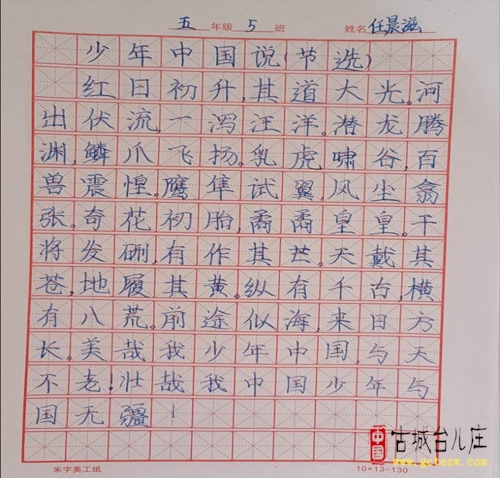 五 年级 5 班 姓名 任晨滋
少年中国说(节选)
红日初升,其道大光。河
出伏流,一泻汪洋。潜龙腾
渊,鳞爪飞扬。乳虎啸谷,百
兽震惶。鹰隼试翼,风尘翕
张。奇花初胎,矞矞皇皇。干
将发硎,有作其芒。天戴其
苍,地履其黄。纵有千古,横
有八荒。前途似海,来日方
长。美哉我少年中国,与天
不老!壮哉我中国少年与
国无疆!
米字美工纸 10×13=130
中国 古城台儿庄